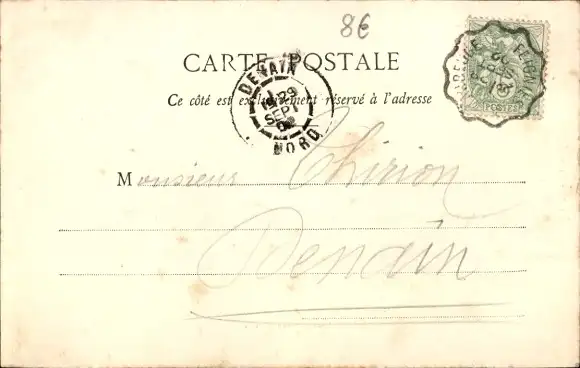 8€
CARTE POSTALE
Ce côté est exclusivement réservé à l'adresse
DENAIN
29
SEPT
NORD
POSTES
Monsieur Thirion
Denain